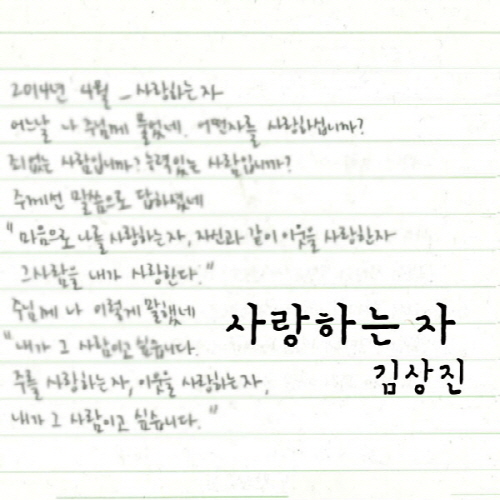 2014년 4월 _ 사랑하는 자
어느날 나 주님께 물었네. 어떤자를 사랑하십니까?
죄없는 사람입니까? 능력있는 사람입니까?
주께선 말씀으로 답하셨네
"마음으로 나를 사랑하는자, 자신과 같이 이웃을 사랑한자
그사람을 내가 사랑한다."
주님께 나 이렇게 말했네
"내가 그 사람이고 싶습니다.
주를 사랑하는자, 이웃을 사랑하는자,
내가 그 사람이고 싶습니다."
사랑하는 자
김상진